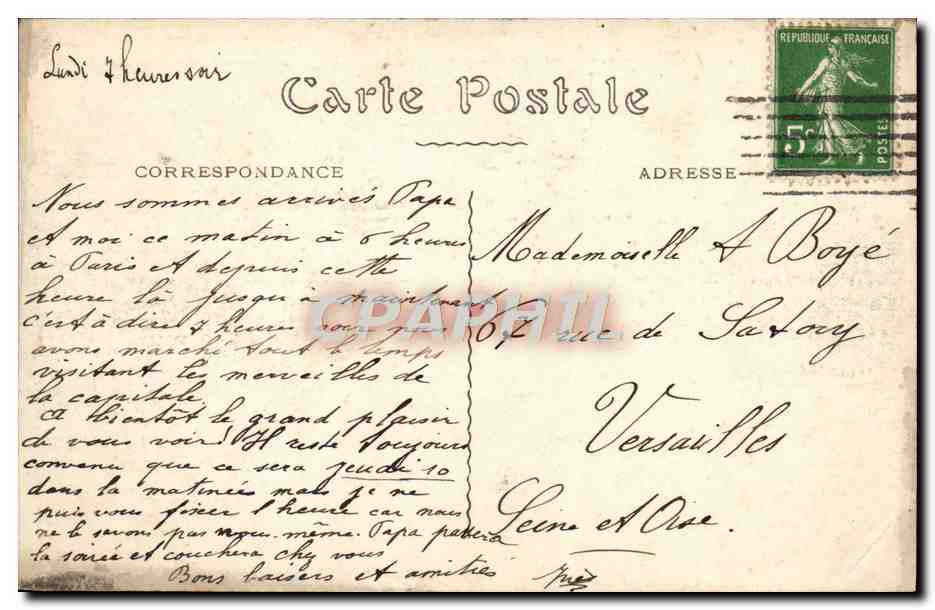 Lundi 7 heures soir
REPUBLIQUE FRANÇAISE
5c
POSTES
Carte Postale
CORRESPONDANCE
ADRESSE
Nous sommes arrivés Papa
et moi ce matin à 6 heures
à Paris et depuis cette
heure là jusqu'à maintenant
c'est à dire 7 heures soir nous
avons marché tout le temps
visitant les merveilles de
la capitale.
A bientôt le grand plaisir
de vous voir! Il reste toujours
convenu que ce sera jeudi 10
dans la matinée mais je ne
puis vous fixer l'heure car nous
ne le savons pas nous-même. Papa passera
la soirée et couchera chez vous
Bons baisers et amitiés
Mademoiselle A Boyé
67 rue de Satory
Versailles
Seine et Oise.
CPAPHIL